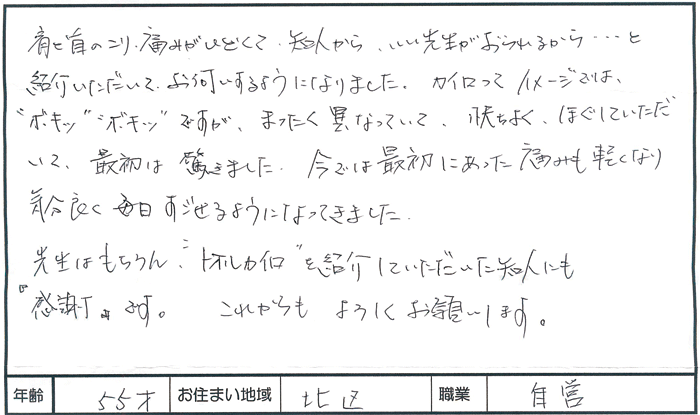 肩と首のこり、痛みがひどくて、知人から、いい先生がおられるから…と
紹介いただいて、お伺いするようになりました。カイロってイメージでは、
"ボキッ" "ボキッ" ですが、まったく異なっていて、気持ちよく、ほぐしていただ
いて、最初は驚きました。今では最初にあった痛みも軽くなり
気分良く毎日すごせるようになってきました。
先生はもちろん、"トオルカイロ"を紹介していただいた知人にも
"感謝"です。 これからもよろしくお願いします。
年齢 55才 お住まい地域 北区 職業 自営